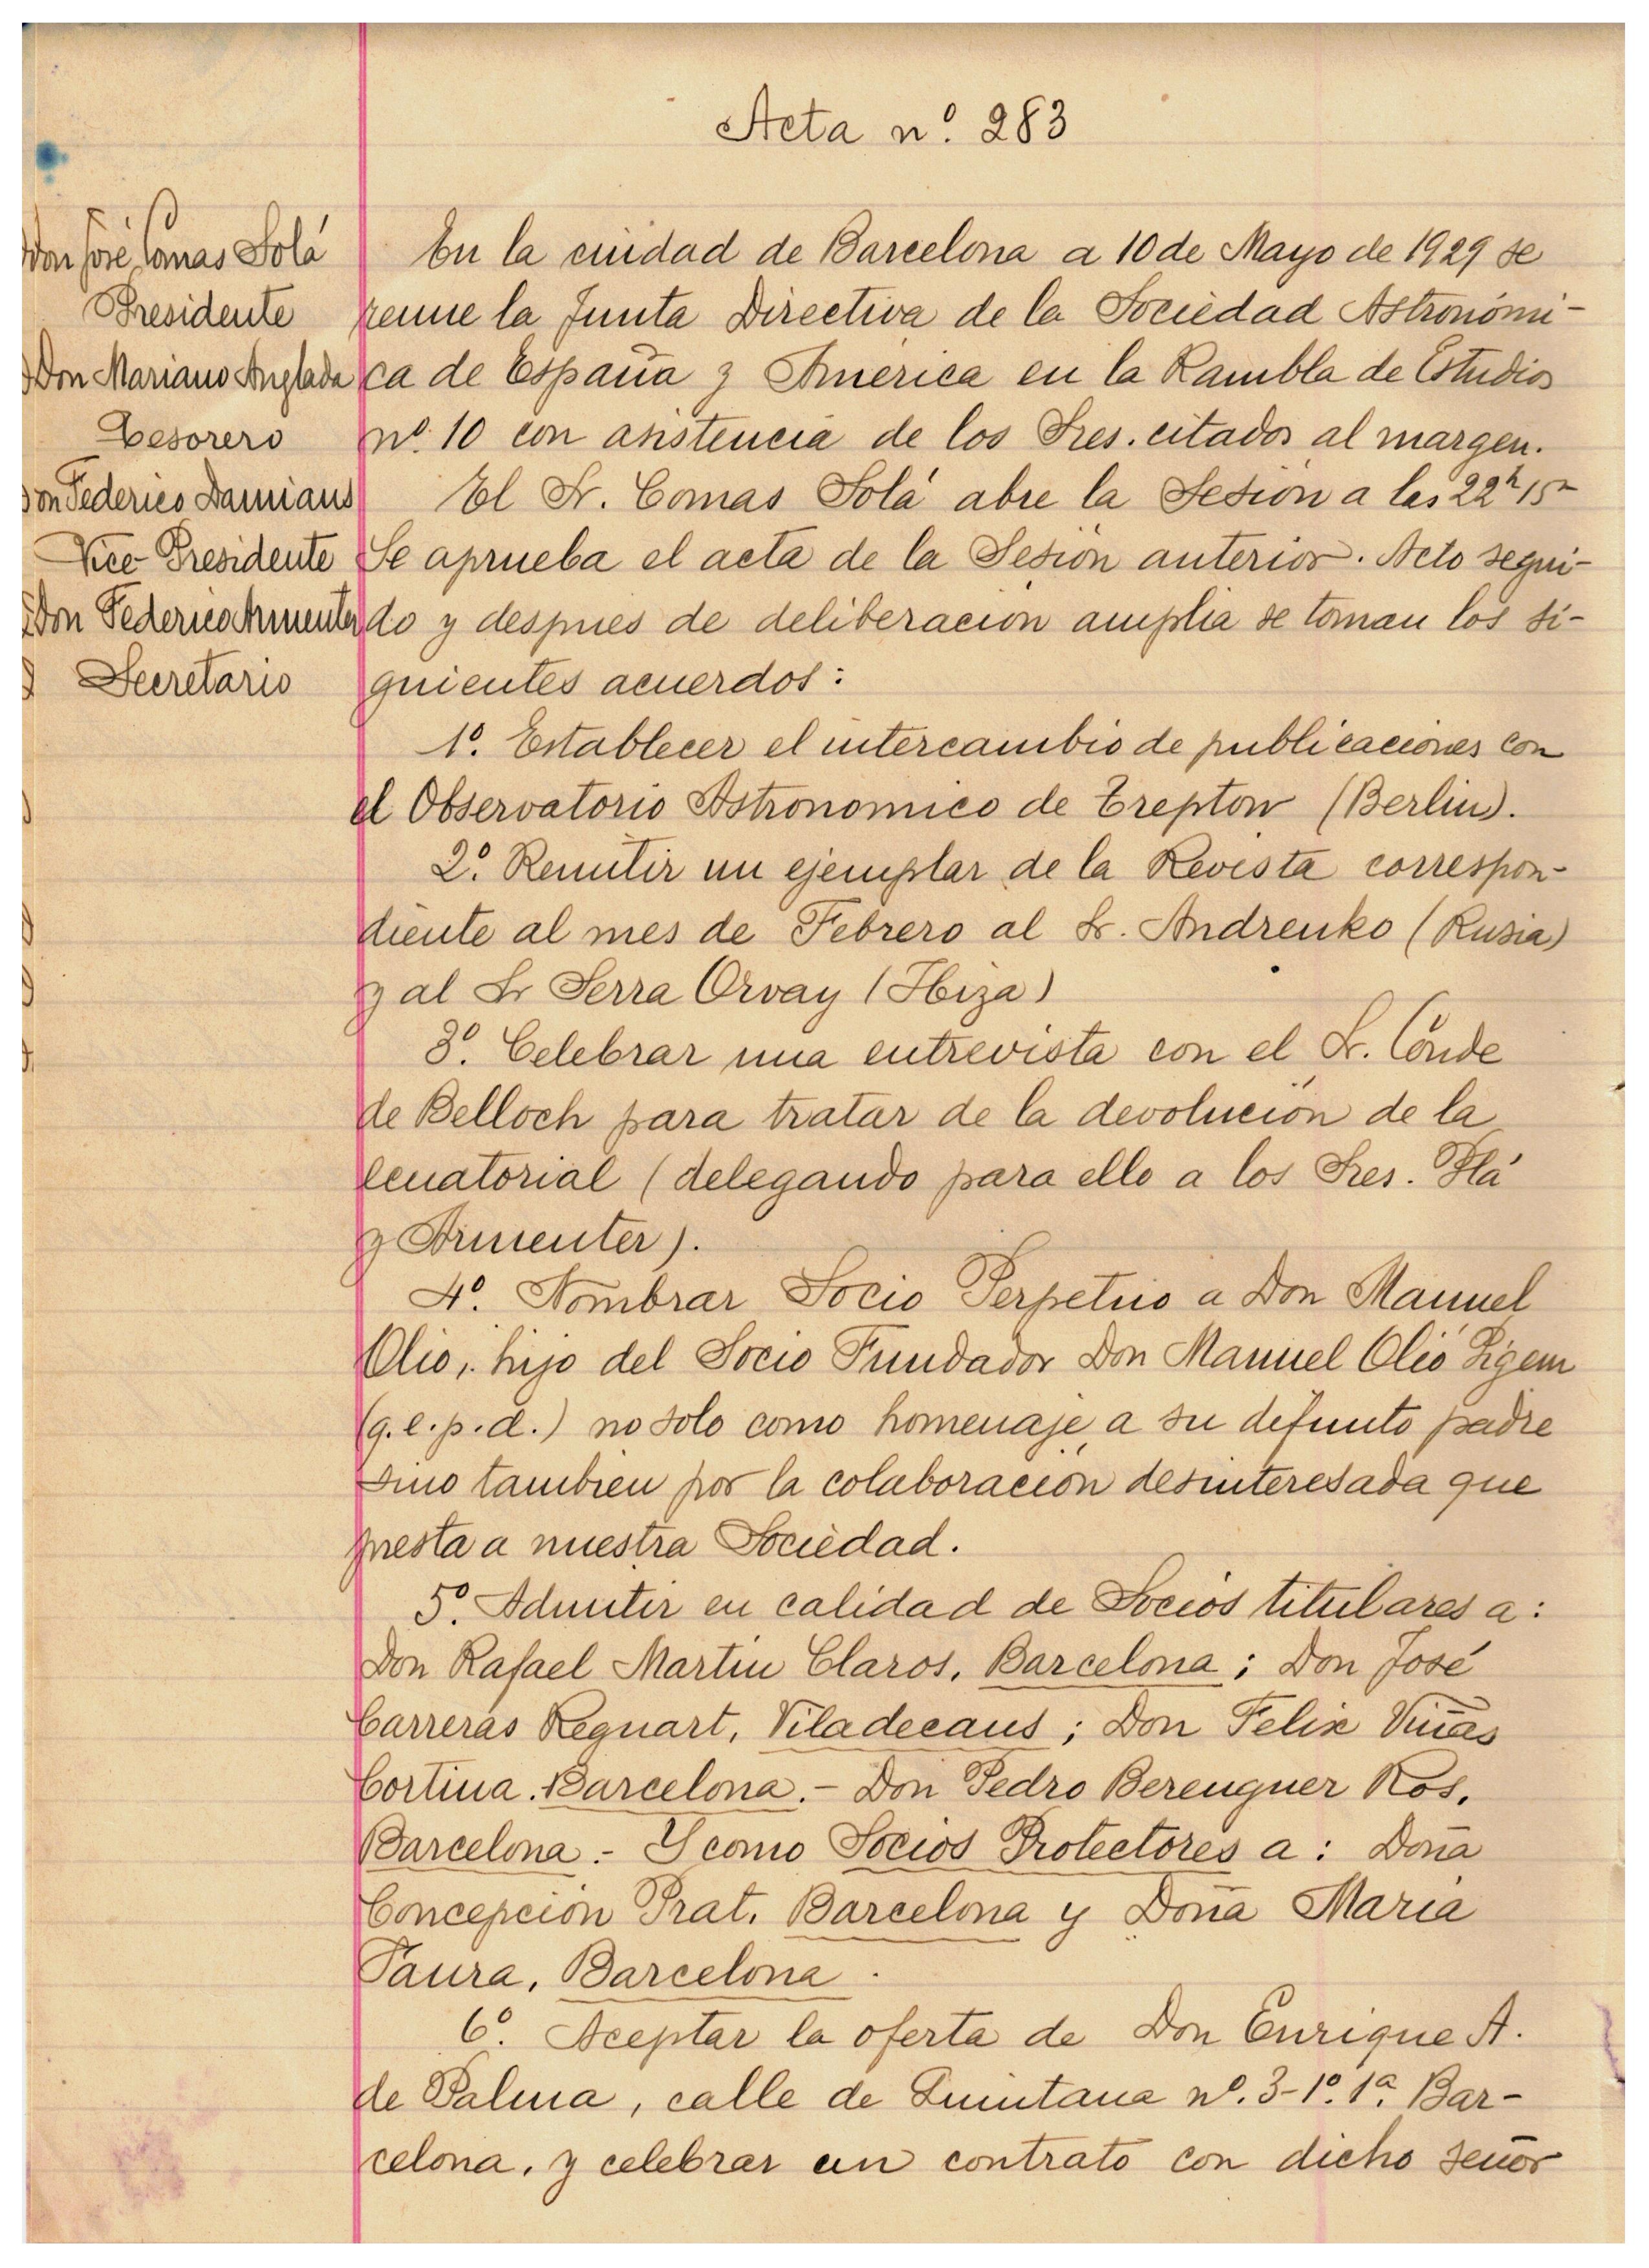 Acta nº. 283
Don José Comas Solá
Presidente
Don Mariano Anglada
Tesorero
Don Federico Damians
Vice-Presidente
Don Federico Armenter
Secretario
En la ciudad de Barcelona a 10 de Mayo de 1929 se
reune la Junta Directiva de la Sociedad Astronómi-
ca de España y America en la Rambla de Estudios
nº. 10 con asistencia de los Sres. citados al margen.
El Sr. Comas Solá abre la Sesión a las 22h 15m
Se aprueba el acta de la Sesión anterior. Acto segui-
do y despues de deliberación amplia se toman los si-
guientes acuerdos:
1º. Establecer el intercambio de publicaciones con
el Observatorio Astronomico de Treptow (Berlin).
2º. Remitir un ejemplar de la Revista correspon-
diente al mes de Febrero al Sr. Andrenko (Rusia)
y al Sr Serra Orvay (Ibiza)
3º. Celebrar una entrevista con el Sr. Conde
de Belloch para tratar de la devolución de la
ecuatorial (delegando para ello a los Sres. Plá
y Armenter).
4º. Nombrar Socio Perpetuo a Don Manuel
Olio, hijo del Socio Fundador Don Manuel Olió
(q.e.p.d.) no solo como homenaje a su difunto padre
sino tambien por la colaboración desinteresada que
presta a nuestra Sociedad.
5º. Admitir en calidad de Socios titulares a:
Don Rafael Martin Claros, Barcelona; Don José
Carreras Reguart, Viladecans; Don Felix Viñas
Cortina. Barcelona.- Don Pedro Berenguer Ros,
Barcelona.- Y como Socios Protectores a: Doña
Concepción Prat, Barcelona y Doña Maria
Paura, Barcelona.
6º. Aceptar la oferta de Don Enrique A.
de Palma, calle de Quintana nº. 3-1º. 1ª. Bar-
celona, y celebrar un contrato con dicho señor